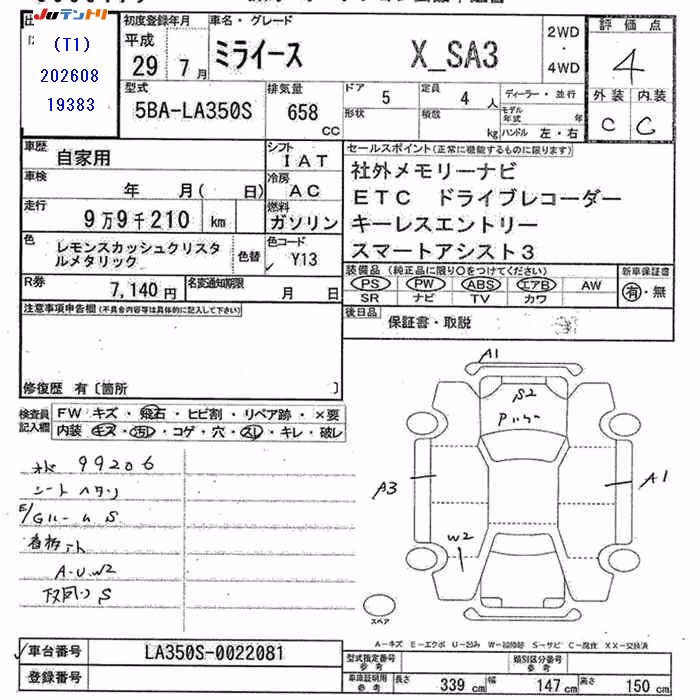 Juテントリ
初度登録年月
車名・グレード
評価点
(T1)
202608
19383
平成
29年7月
ミライース
X_SA3
2WD
・
4WD
4
型式
5BA-LA350S
排気量
658
CC
ドア
5
定員
4
人
ディーラー・並行
形状
積載
kg
モデル年式
年
ハンドル 左・右
外装
内装
C
C
車歴
自家用
シフト
IAT
セールスポイント(正常に機能するものに限ります)
社外メモリーナビ
ETC ドライブレコーダー
キーレスエントリー
スマートアシスト3
車検
年 月( 日)
冷房
AC
走行
9万9千210 km
燃料
ガソリン
色
レモンスカッシュクリスタ
ルメタリック
色替
色コード
Y13
装備品(純正品に限り○をつけてください)
新車保証書
PS
PW
ABS
エアB
AW
SR
ナビ
TV
カワ
有・無
R券
7,140円
名変通知期限
月 日
後日品
保証書・取説
注意事項申告欄(不具合内容等は具体的に記入して下さい)
修復歴 有〔箇所 〕
検査員
記入欄
FW キズ・飛石・ヒビ割・リペア跡・×要
内装 キズ・汚れ・コゲ・穴・スレ・キレ・破レ
99206
シートヘタリ
E/Gルーム S
A-U.W2
下回り S
A1
S2
A3
A1
W2
スペア
A-キズ E-エクボ U-凹み W-補修跡 S-サビ C-腐食 XX-交換済
車台番号
LA350S-0022081
登録番号
型式指定番号
参考
類別区分番号
参考
車庫証明用
参考
長さ
339 cm
幅
147 cm
高さ
150 cm